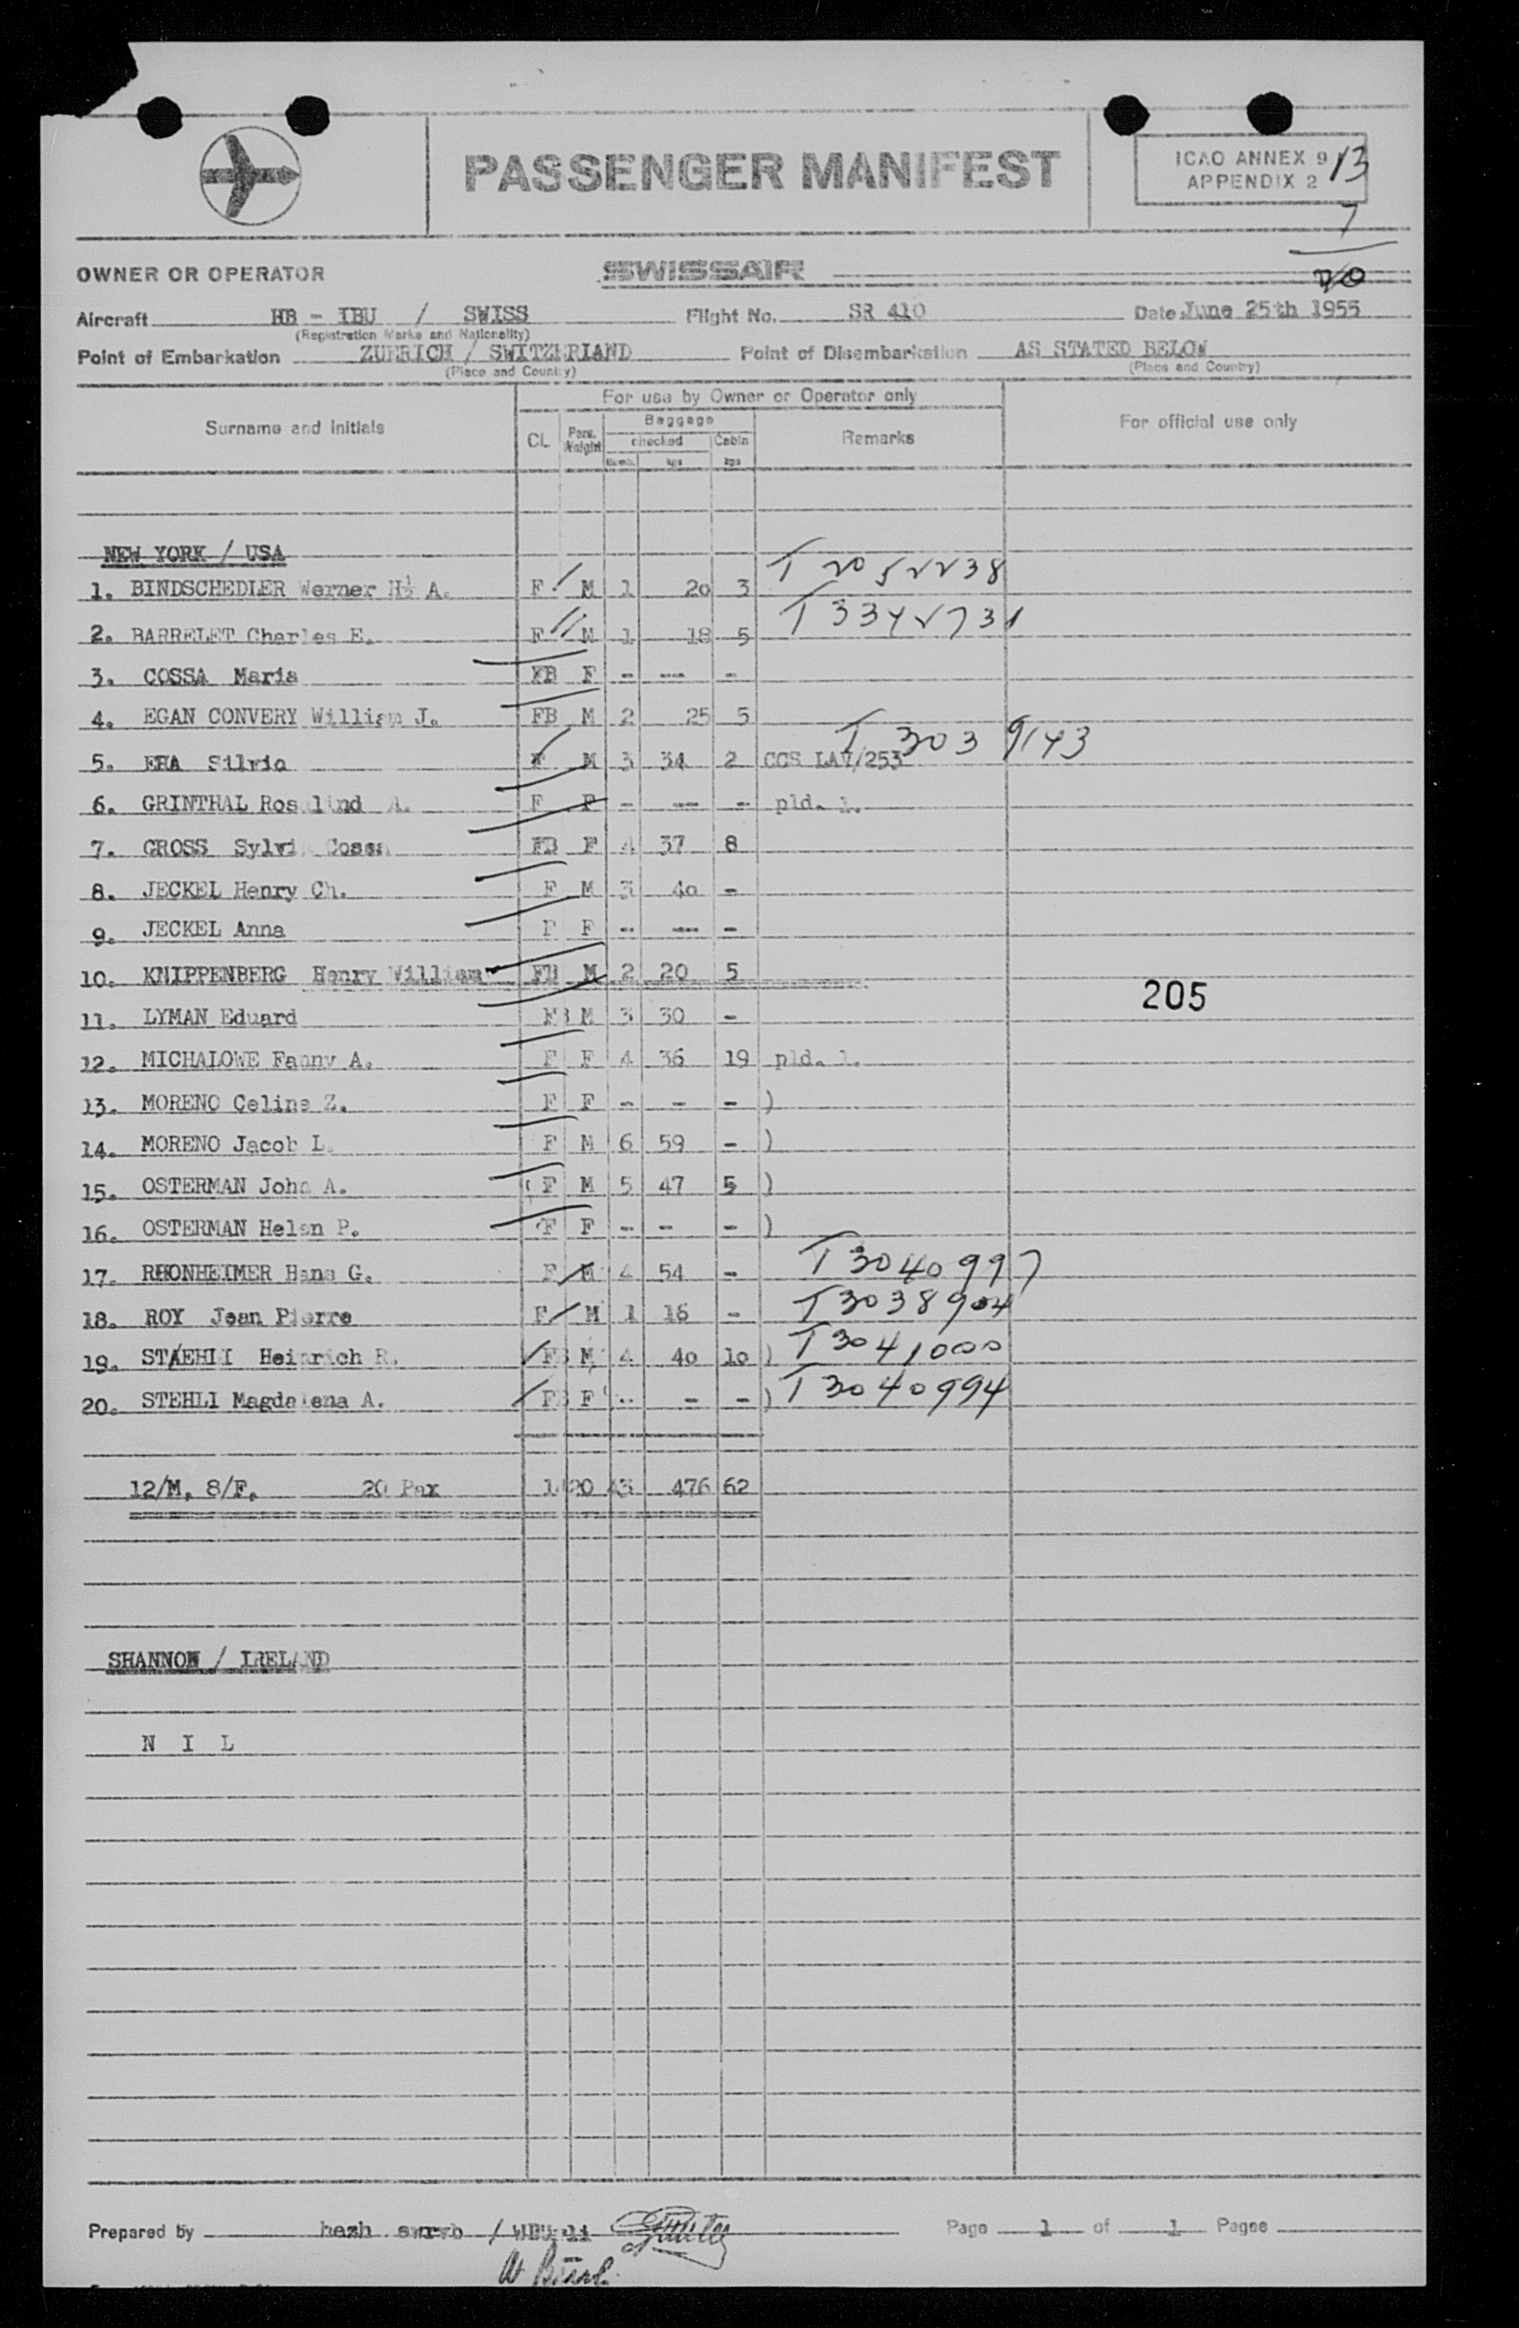 PASSENGER MANIFEST
ICAO ANNEX 9
APPENDIX 2
13
7
20
OWNER OR OPERATOR SWISSAIR
Aircraft HB - IBU / SWISS Flight No. SR 410 Date June 25th 1955
(Registration Marks and Nationality)
Point of Embarkation ZUERICH / SWITZERLAND Point of Disembarkation AS STATED BELOW
(Place and Country) (Place and Country)
Surname and initials For use by Owner or Operator only For official use only
CL Pers. Weight Baggage Remarks
checked Cabin
Numb. kgs kgs
NEW YORK / USA
1. BINDSCHEDLER Werner H A. F M 1 20 3 T 2052238
2. BARRELET Charles E. F M 1 18 5 T 3342731
3. COSSA Maria FB F - --- -
4. EGAN CONVERY William J. FB M 2 25 5
5. ERA Silvio F M 3 34 2 CCS LAV/253 T 3039143
6. GRINTHAL Rosalind A. F F - --- - pld. 1.
7. GROSS Sylvia Cossa FB F 4 37 8
8. JECKEL Henry Ch. F M 3 40 -
9. JECKEL Anna F F - --- -
10. KNIPPENBERG Henry William FB M 2 20 5
205
11. LYMAN Eduard FB M 3 30 -
12. MICHALOWE Fanny A. F F 4 36 19 pld. 1.
13. MORENO Celine Z. F F - - - )
14. MORENO Jacob L. F M 6 59 - )
15. OSTERMAN John A. F M 5 47 5 )
16. OSTERMAN Helen P. F F - - - )
17. RHONHEIMER Hans G. F M 4 54 - T 3040997
18. ROY Jean Pierre F M 1 16 - T 3038904
19. STAEHLI Heinrich R. FB M 4 40 10 ) T 3041000
20. STEHLI Magdalena A. FB F - - - ) T 3040994
12/M, 8/F, 20 Pax 20 43 476 62
SHANNON / IRELAND
N I L
Prepared by hazh swrwb / Page 1 of 1 Pages